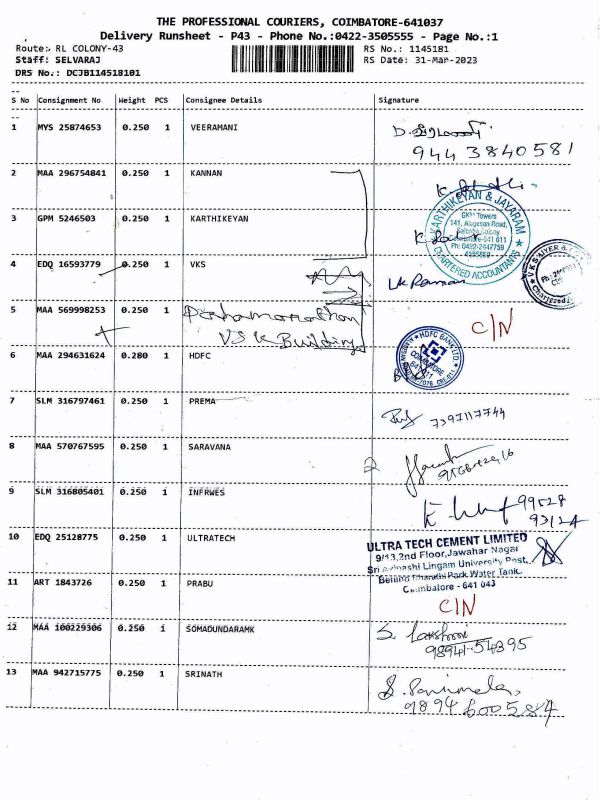 THE PROFESSIONAL COURIERS, COIMBATORE-641037
Delivery Runsheet - P43 - Phone No.:0422-3505555 - Page No.:1
Route: RL COLONY-43 RS No.: 1145181
Staff: SELVARAJ RS Date: 31-Mar-2023
DRS No.: DCJB114518101
S No Consignment No Weight PCS Consignee Details Signature
1 MYS 25874653 0.250 1 VEERAMANI
9443840581
2 MAA 296754841 0.250 1 KANNAN
KARTHIKEYAN & JAYARAM
GKS Towers
141, Alagesan Road,
3 GPM 5246503 0.250 1 KARTHIKEYAN
641 011
Ph: 0422-2447759
CHARTERED ACCOUNTANTS
4 EDQ 16593779 0.250 1 VKS
5 MAA 569998253 0.250 1
VSK Building
C/N
6 MAA 294631624 0.280 1 HDFC
HDFC BANK LTD.
COIMBATORE
641 011
7 SLM 316797461 0.250 1 PREMA
7397117744
8 MAA 570767595 0.250 1 SARAVANA
2
9 SLM 316805401 0.250 1 INFRWES
99528
93124
10 EDQ 25128775 0.250 1 ULTRATECH
ULTRA TECH CEMENT LIMITED
9/13,2nd Floor,Jawahar Nagar
Sri Avinashi Lingam University Post,
Behind Bharathi Park Water Tank
Coimbatore - 641 043
11 ART 1843726 0.250 1 PRABU
C/N
12 MAA 100229306 0.250 1 SOMADUNDARAMK
S. Lakshmi
98941-54395
13 MAA 942715775 0.250 1 SRINATH
9894600584